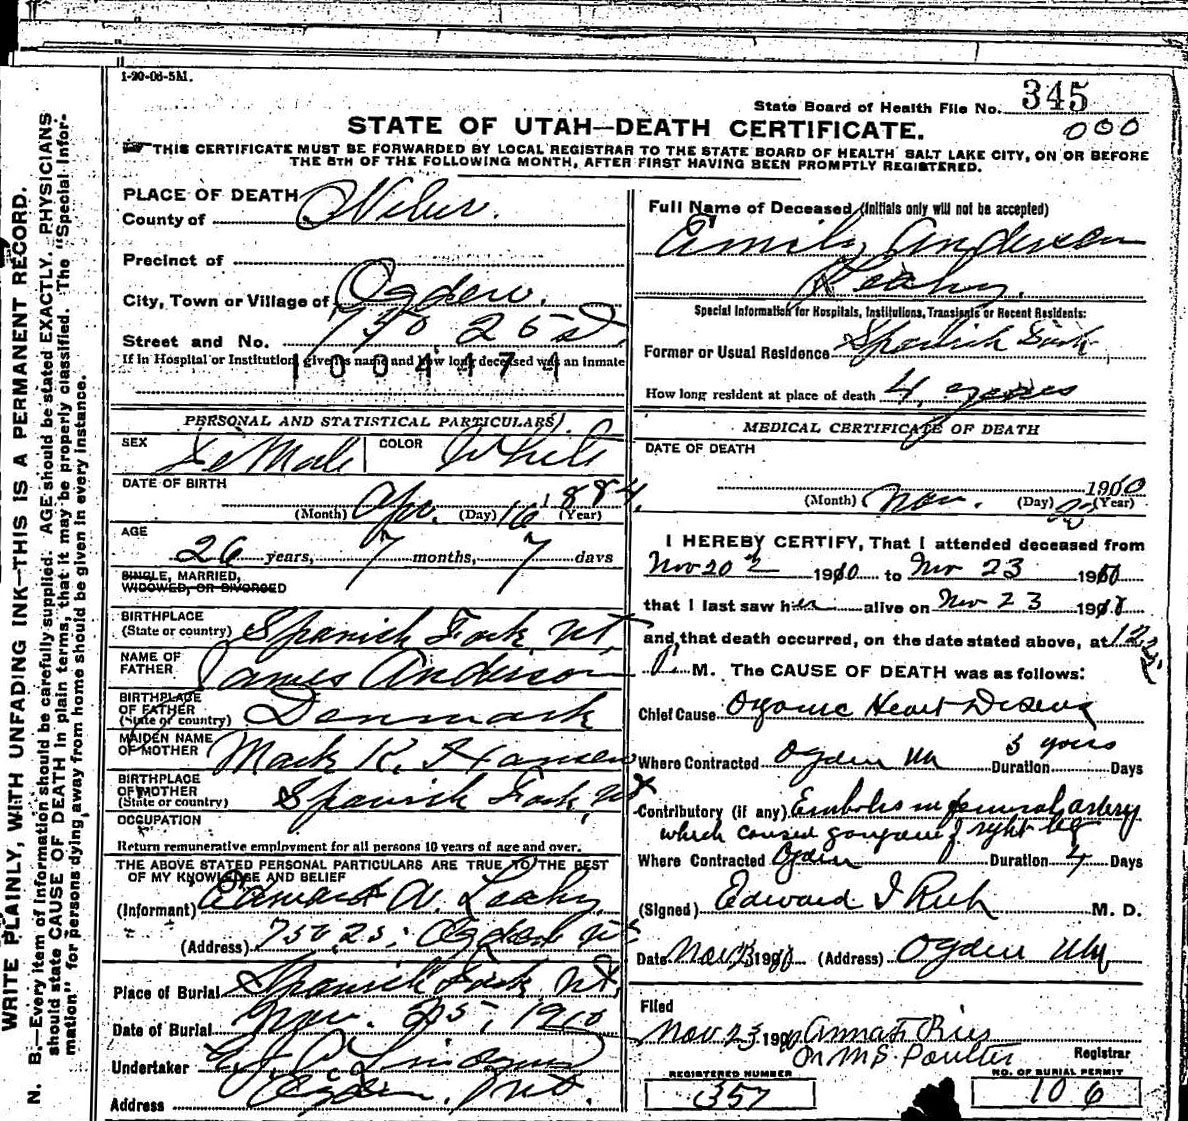 1-20-06-5M.
State Board of Health File No. 345
000
STATE OF UTAH—DEATH CERTIFICATE.
THIS CERTIFICATE MUST BE FORWARDED BY LOCAL REGISTRAR TO THE STATE BOARD OF HEALTH SALT LAKE CITY, ON OR BEFORE
THE 5TH OF THE FOLLOWING MONTH, AFTER FIRST HAVING BEEN PROMPTLY REGISTERED.
WRITE PLAINLY, WITH UNFADING INK—THIS IS A PERMANENT RECORD.
N. B.—Every item of information should be carefully supplied. AGE should be stated EXACTLY. PHYSICIANS
should state CAUSE OF DEATH in plain terms, that it may be properly classified. The "Special Infor-
mation" for persons dying away from home should be given in every instance.
PLACE OF DEATH
County of Weber.
Precinct of
City, Town or Village of Ogden.
Street and No. 750 25 st
If in Hospital or Institution, give its name and how long deceased was an inmate
1004171
PERSONAL AND STATISTICAL PARTICULARS
SEX Female COLOR White
DATE OF BIRTH
(Month) Apr. (Day) 16 (Year) 1884
AGE
26 years, 7 months, 7 days
SINGLE, MARRIED,
WIDOWED, OR DIVORCED
BIRTHPLACE
(State or country) Spanish Fork, Ut,
NAME OF
FATHER James Anderson
BIRTHPLACE
OF FATHER
(State or country) Denmark
MAIDEN NAME
OF MOTHER K. Hansen
BIRTHPLACE
OF MOTHER
(State or country) Spanish Fork, Ut
OCCUPATION
Return remunerative employment for all persons 10 years of age and over.
THE ABOVE STATED PERSONAL PARTICULARS ARE TRUE TO THE BEST
OF MY KNOWLEDGE AND BELIEF
(Informant) Edward W. Leahy
(Address) 750 25 Ogden Ut
Place of Burial Spanish Fork Ut,
Date of Burial Nov. 25, 1910
Undertaker
Address Ogden, Ut.
Full Name of Deceased (Initials only will not be accepted)
Emily Anderson
Leahy.
Special Information for Hospitals, Institutions, Transients or Recent Residents:
Former or Usual Residence Spanish Fork
How long resident at place of death 4 years
MEDICAL CERTIFICATE OF DEATH
DATE OF DEATH
1910
(Month) Nov. (Day) 23 (Year)
I HEREBY CERTIFY, That I attended deceased from
Nov 20 1910 to Nov 23 1910
that I last saw her alive on Nov 23 1910
and that death occurred, on the date stated above, at 12
P. M. The CAUSE OF DEATH was as follows:
Chief Cause Organic Heart Disease
Where Contracted Ogden Utah Duration 5 years Days
Contributory (if any) Embolis in femoral artery
which caused gangrene of right leg
Where Contracted Ogden Duration 4 Days
(Signed) Edward I Rich M. D.
Date Nov 23 1910 (Address) Ogden Utah
Filed
Nov 23 1910 Anna F Ries
M S Poulter Registrar
REGISTERED NUMBER
357
NO. OF BURIAL PERMIT
106